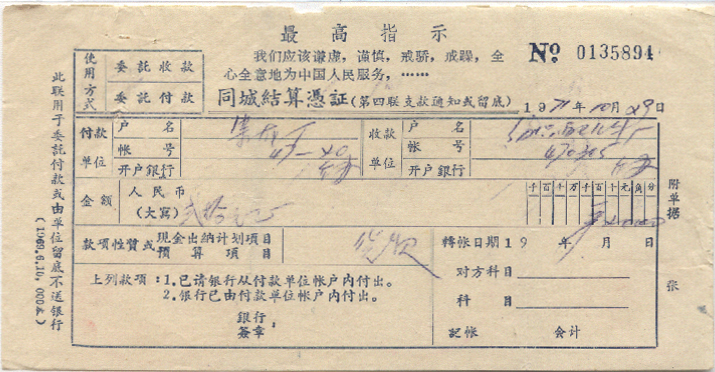 最高指示
我们应该谦虚，谨慎，戒骄，戒躁，全
心全意地为中国人民服务，……
№ 0135894
使用方式
委託收款
委託付款
同城结算憑証（第四联支款通知或留底）
1971年10月29日
付款单位
户名
帐号
47-40
开户銀行
收款单位
户名
帐号
470305
开户銀行
金额
人民币
（大寫）
千百十万千百十元角分
款项性質或
现金出纳计划项目
预算项目
轉帐日期19 年 月 日
上列款项：1.已请银行从付款单位帐户内付出。
2.银行已由付款单位帐户内付出。
銀行
签章：
对方科目
科目
記帐 会计
附单据 张
此联用于委託付款或由单位留底不送银行